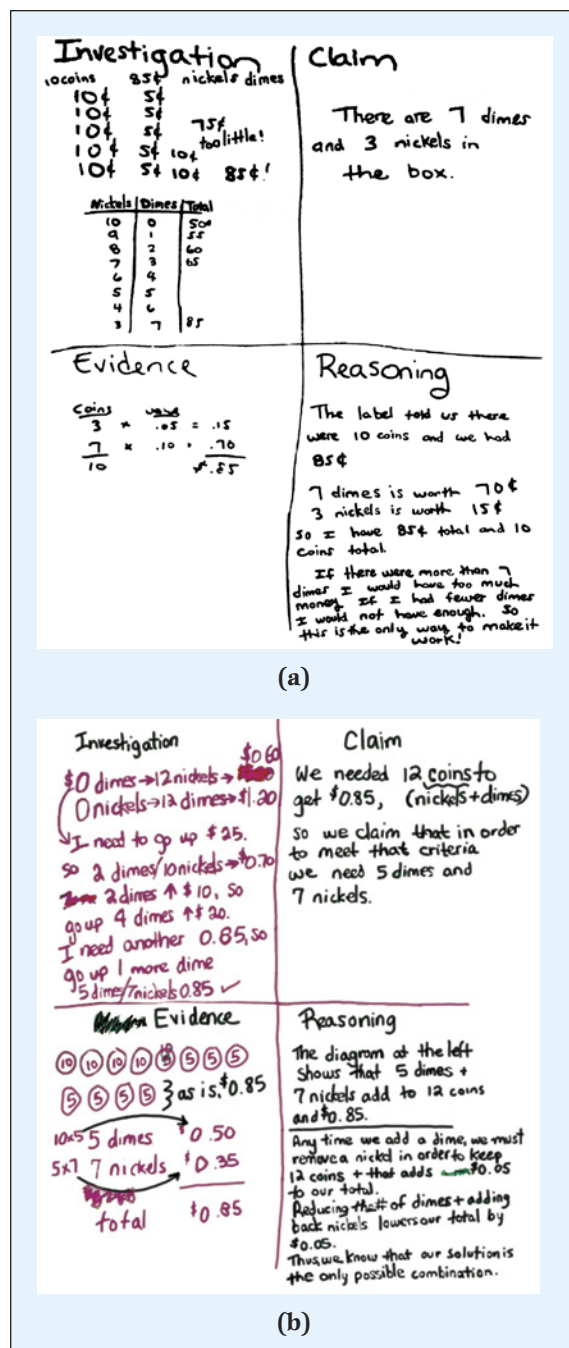 Investigation
10 coins 85¢ nickels dimes
10¢ 5¢
10¢ 5¢
10¢ 5¢ 75¢
too little!
10¢ 5¢ 10¢
10¢ 5¢ 10¢ 85¢!
Nickels Dimes Total
10 0 50¢
9 1 55
8 2 60
7 3 65
6 4
5 5
4 6
3 7 85
Claim
There are 7 dimes
and 3 nickels in
the box.
Evidence
coins value
3 × .05 = .15
7 × .10 = .70
10 $.85
Reasoning
The label told us there
were 10 coins and we had
85¢
7 dimes is worth 70¢
3 nickels is worth 15¢
so I have 85¢ total and 10
coins total.
If there were more than 7
dimes I would have too much
money If I had fewer dimes
I would not have enough. So
this is the only way to make it
work!
(a)
Investigation
$0.60
$0 dimes→12 nickels→
0 nickels→12 dimes→$1.20
I need to go up $25.
so 2 dimes/10 nickels→$0.70
2 dimes ↑ $10, so
go up 4 dimes ↑$20.
I need another 0.85, so
go up 1 more dime
5 dime/7 nickels 0.85 ✓
Claim
We needed 12 coins to
get $0.85, (nickels+dimes)
so we claim that in order
to meet that criteria
we need 5 dimes and
7 nickels.
Evidence
10 10 10 10 10 5 5 5
5 5 5 5 } as is, $0.85
10×5 5 dimes $0.50
5×7 7 nickels $0.35
total $0.85
Reasoning
The diagram at the left
shows that 5 dimes +
7 nickels add to 12 coins
and $0.85.
Any time we add a dime, we must
remove a nickel in order to keep
12 coins + that adds $0.05
to our total.
Reducing the # of dimes + adding
back nickels lowers our total by
$0.05.
Thus, we know that our solution is
the only possible combination.
(b)